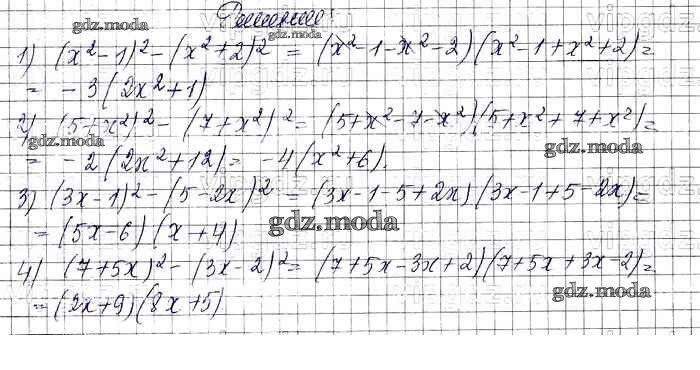 Решение
1) (x²-1)²-(x²+2)² = (x²-1-x²-2)(x²-1+x²+2)=
= -3(2x²+1)
2) (5+x²)²-(7+x²)²= (5+x²-7-x²)(5+x²+7+x²)=
= -2(2x²+12)= -4(x²+6).
3) (3x-1)²-(5-2x)² = (3x-1-5+2x)(3x-1+5-2x)=
= (5x-6)(x+4)
4) (7+5x)²-(3x-2)²= (7+5x-3x+2)(7+5x+3x-2)=
= (2x+9)(8x+5)
gdz.moda
gdz.moda
gdz.moda
gdz.moda
gdz.moda
gdz.moda